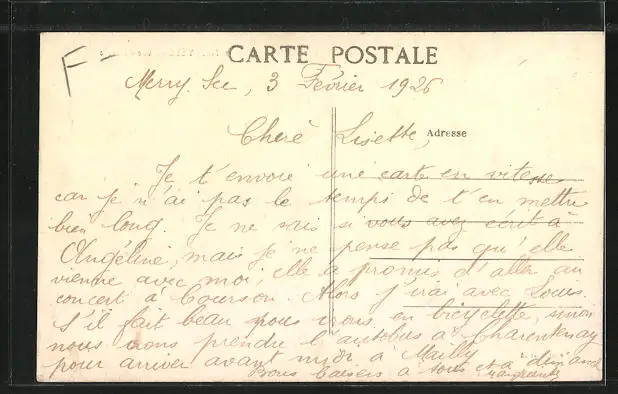 F-
CARTE POSTALE
Merry. Sec, 3 Février 1926
Cheré Lisette,
Adresse
Je t'envoie une carte en vitesse
car je n'ai pas le temps de t'en mettre
bien long. Je ne sais si vous avez écrit à
Angéline, mais je ne pense pas qu'elle
vienne avec moi, elle a promis d'aller au
concert à Courson. Alors j'irai avec Louis.
S'il fait beau nous irons en bicyclette, sinon
nous irons prendre l'autobus à Charentenay
pour arriver avant midi à Mailly
Bons baisers à tous et à dimanche